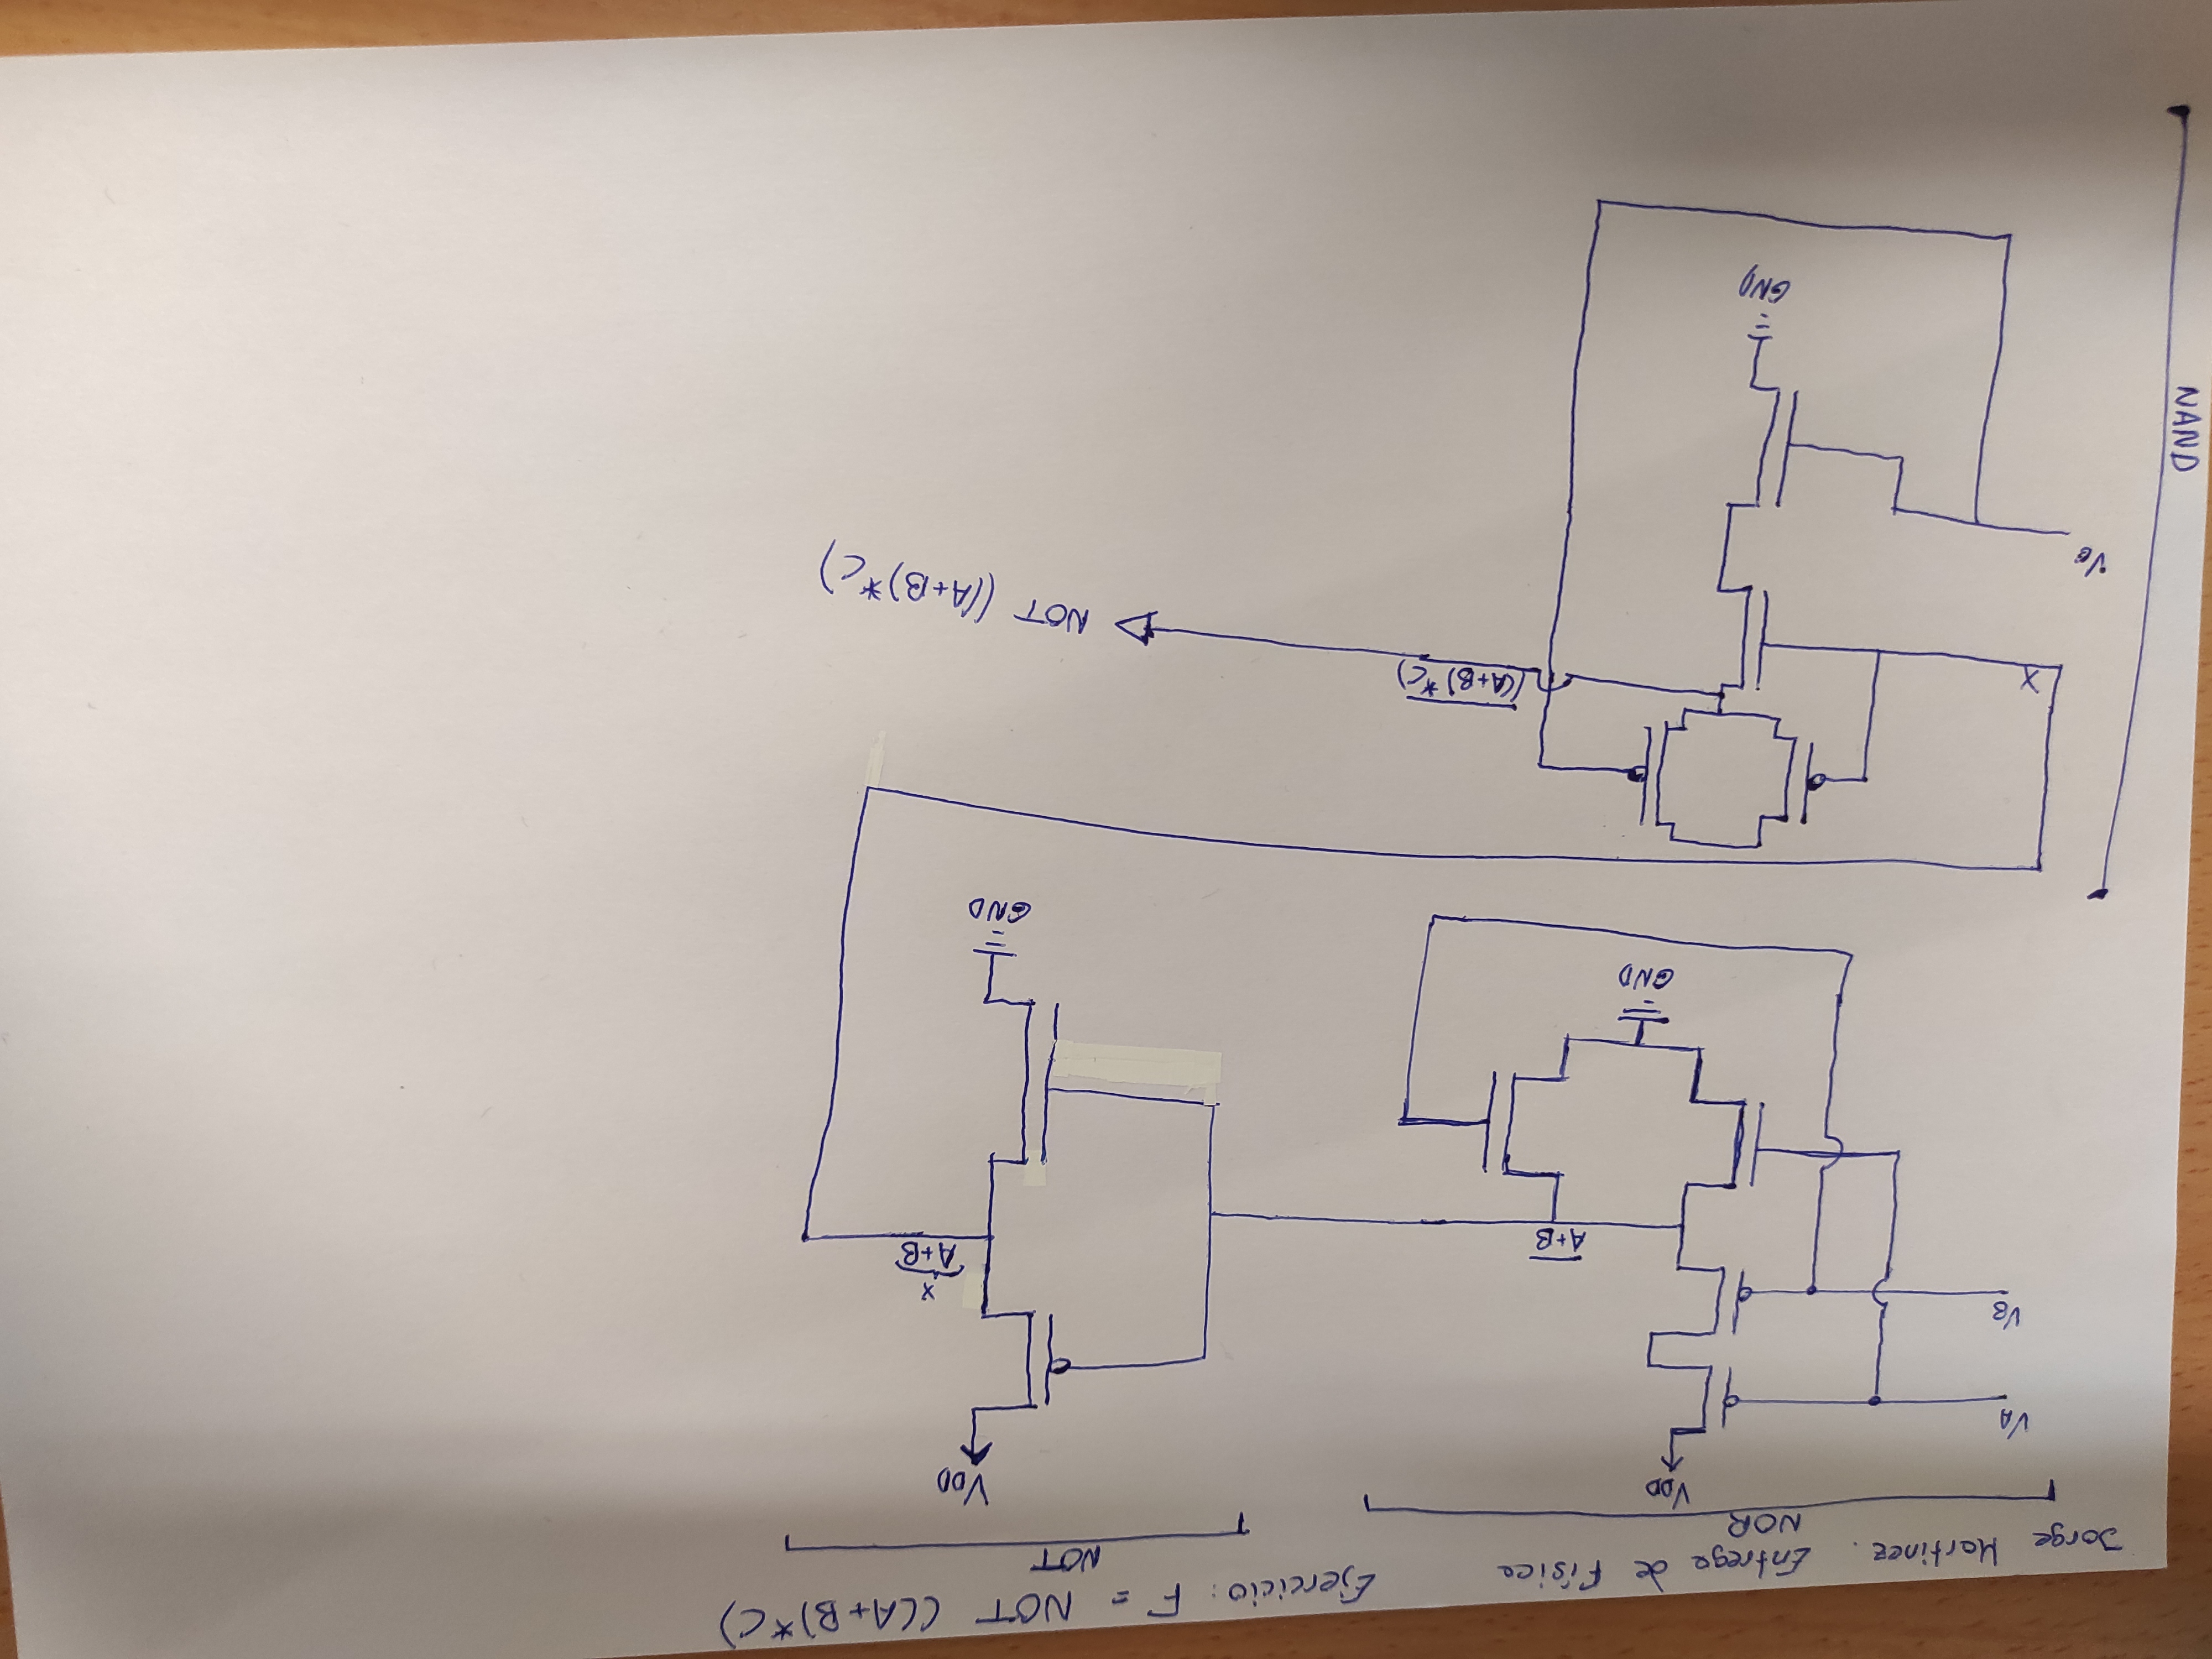 Jorge Martinez. Entrega de Física Ejercicio: F = NOT ((A+B)*C)
NOR
NOT
VDD
VDD
VA
VB
A+B
X
A+B
GND
GND
X
((A+B)*C)
NOT ((A+B)*C)
NAND
GND